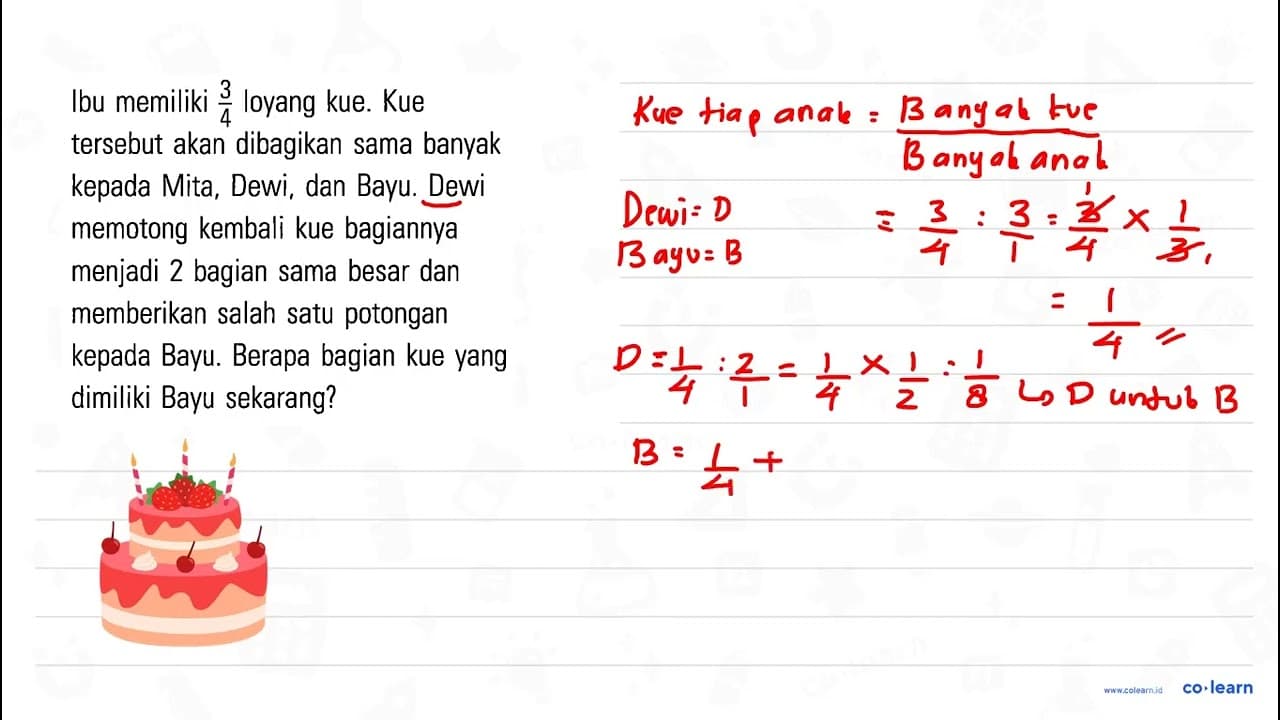 Ibu memiliki 3/4 loyang kue. Kue
tersebut akan dibagikan sama banyak
kepada Mita, Dewi, dan Bayu. Dewi
memotong kembali kue bagiannya
menjadi 2 bagian sama besar dan
memberikan salah satu potongan
kepada Bayu. Berapa bagian kue yang
dimiliki Bayu sekarang?
Kue tiap anak = Banyak kue / Banyak anak
Dewi = D
Bayu = B
= 3/4 : 3/1 = 3/4 × 1/3
1
1
= 1/4 //
D = 1/4 : 2/1 = 1/4 × 1/2 = 1/8 ↳ D untuk B
B = 1/4 +
www.colearn.id
co·learn